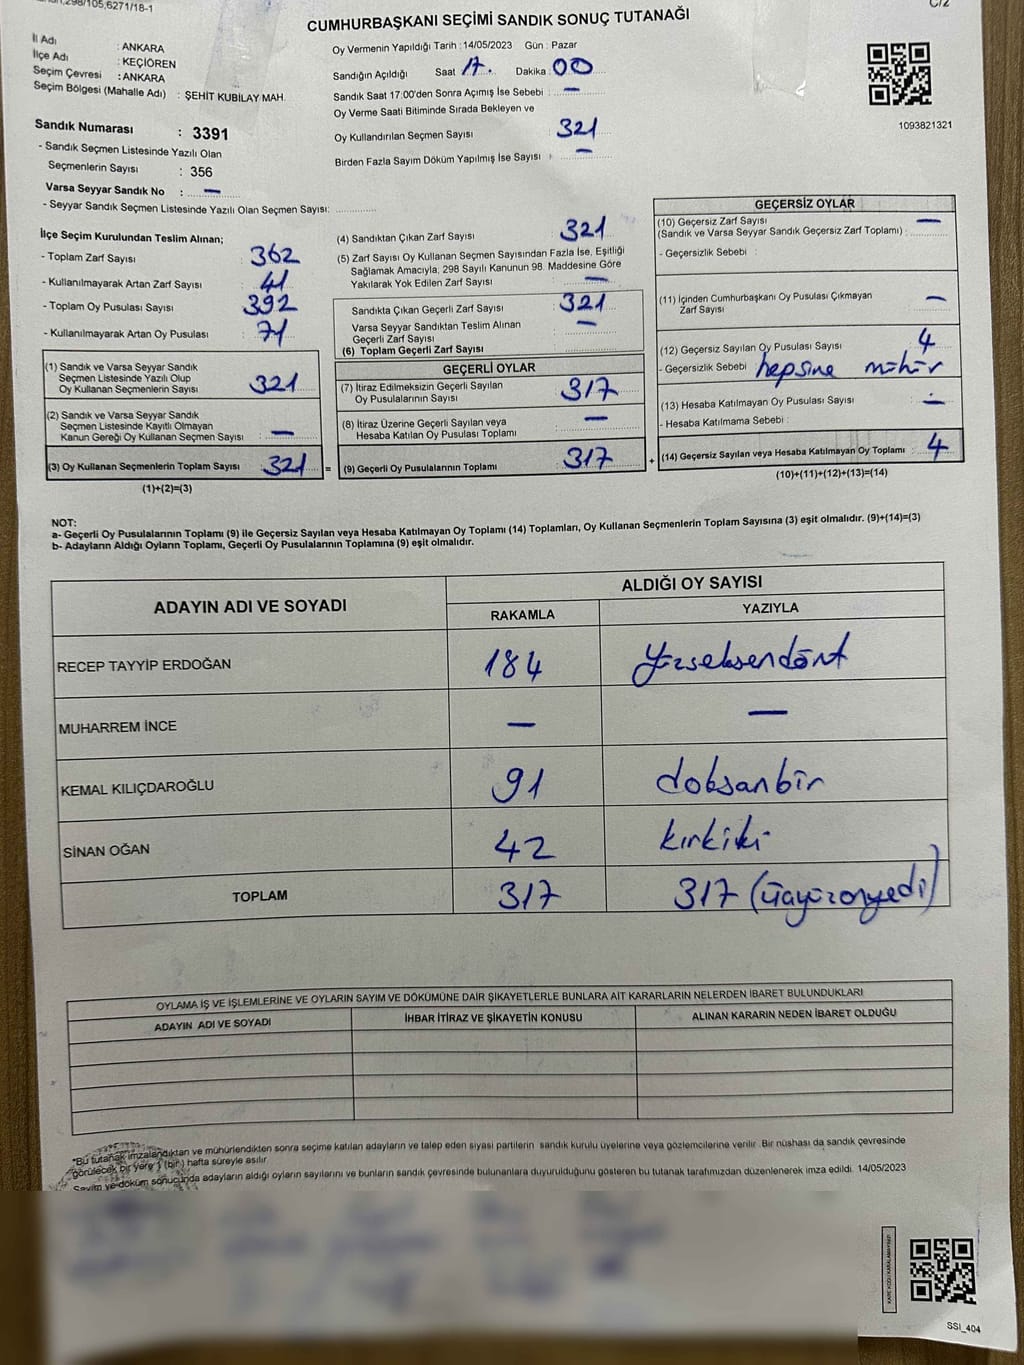 298/105,6271/18-1
C/2
CUMHURBAŞKANI SEÇİMİ SANDIK SONUÇ TUTANAĞI
İl Adı : ANKARA
İlçe Adı : KEÇİÖREN
Seçim Çevresi : ANKARA
Seçim Bölgesi (Mahalle Adı) : ŞEHİT KUBİLAY MAH.
Sandık Numarası : 3391
- Sandık Seçmen Listesinde Yazılı Olan
Seçmenlerin Sayısı : 356
Varsa Seyyar Sandık No : —
- Seyyar Sandık Seçmen Listesinde Yazılı Olan Seçmen Sayısı: ................
Oy Vermenin Yapıldığı Tarih : 14/05/2023 Gün : Pazar
Sandığın Açıldığı Saat 17. Dakika : 00
Sandık Saat 17:00'den Sonra Açımış İse Sebebi : —
Oy Verme Saati Bitiminde Sırada Bekleyen ve
Oy Kullandırılan Seçmen Sayısı 321
Birden Fazla Sayım Döküm Yapılmış İse Sayısı : —
1093821321
İlçe Seçim Kurulundan Teslim Alınan;
- Toplam Zarf Sayısı : 362
- Kullanılmayarak Artan Zarf Sayısı : 41
- Toplam Oy Pusulası Sayısı : 392
- Kullanılmayarak Artan Oy Pusulası : 71
(1) Sandık ve Varsa Seyyar Sandık
Seçmen Listesinde Yazılı Olup
Oy Kullanan Seçmenlerin Sayısı : 321
(2) Sandık ve Varsa Seyyar Sandık
Seçmen Listesinde Kayıtlı Olmayan
Kanun Gereği Oy Kullanan Seçmen Sayısı : —
(3) Oy Kullanan Seçmenlerin Toplam Sayısı 321 =
(1)+(2)=(3)
(4) Sandıktan Çıkan Zarf Sayısı 321
(5) Zarf Sayısı Oy Kullanan Seçmen Sayısından Fazla İse, Eşitliği
Sağlamak Amacıyla; 298 Sayılı Kanunun 98. Maddesine Göre
Yakılarak Yok Edilen Zarf Sayısı —
Sandıkta Çıkan Geçerli Zarf Sayısı 321
Varsa Seyyar Sandıktan Teslim Alınan
Geçerli Zarf Sayısı —
(6) Toplam Geçerli Zarf Sayısı
GEÇERLİ OYLAR
(7) İtiraz Edilmeksizin Geçerli Sayılan
Oy Pusulalarının Sayısı 317
(8) İtiraz Üzerine Geçerli Sayılan veya
Hesaba Katılan Oy Pusulası Toplamı —
(9) Geçerli Oy Pusulalarının Toplamı 317 +
GEÇERSİZ OYLAR
(10) Geçersiz Zarf Sayısı —
(Sandık ve Varsa Seyyar Sandık Geçersiz Zarf Toplamı) :
- Geçersizlik Sebebi :
(11) İçinden Cumhurbaşkanı Oy Pusulası Çıkmayan
Zarf Sayısı —
(12) Geçersiz Sayılan Oy Pusulası Sayısı 4
- Geçersizlik Sebebi hepsine mühür
(13) Hesaba Katılmayan Oy Pusulası Sayısı : —
- Hesaba Katılmama Sebebi :
(14) Geçersiz Sayılan veya Hesaba Katılmayan Oy Toplamı : 4
(10)+(11)+(12)+(13)=(14)
NOT:
a- Geçerli Oy Pusulalarının Toplamı (9) ile Geçersiz Sayılan veya Hesaba Katılmayan Oy Toplamı (14) Toplamları, Oy Kullanan Seçmenlerin Toplam Sayısına (3) eşit olmalıdır. (9)+(14)=(3)
b- Adayların Aldığı Oyların Toplamı, Geçerli Oy Pusulalarının Toplamına (9) eşit olmalıdır.
ADAYIN ADI VE SOYADI
ALDIĞI OY SAYISI
RAKAMLA YAZIYLA
RECEP TAYYİP ERDOĞAN 184 yüzseksendört
MUHARREM İNCE — —
KEMAL KILIÇDAROĞLU 91 doksanbir
SİNAN OĞAN 42 kırkiki
TOPLAM 317 317 (üçyüzonyedi)
OYLAMA İŞ VE İŞLEMLERİNE VE OYLARIN SAYIM VE DÖKÜMÜNE DAİR ŞİKAYETLERLE BUNLARA AİT KARARLARIN NELERDEN İBARET BULUNDUKLARI
ADAYIN ADI VE SOYADI İHBAR İTİRAZ VE ŞİKAYETİN KONUSU ALINAN KARARIN NEDEN İBARET OLDUĞU
*Bu tutanak imzalandıktan ve mühürlendikten sonra seçime katılan adayların ve talep eden siyasi partilerin sandık kurulu üyelerine veya gözlemcilerine verilir. Bir nüshası da sandık çevresinde
görülecek bir yere 1 (bir) hafta süreyle asılır.
Sayım ve döküm sonucunda adayların aldığı oyların sayılarını ve bunların sandık çevresinde bulunanlara duyurulduğunu gösteren bu tutanak tarafımızdan düzenlenerek imza edildi. 14/05/2023
KARE KODU KARALAMAYINIZ!
SSI_404